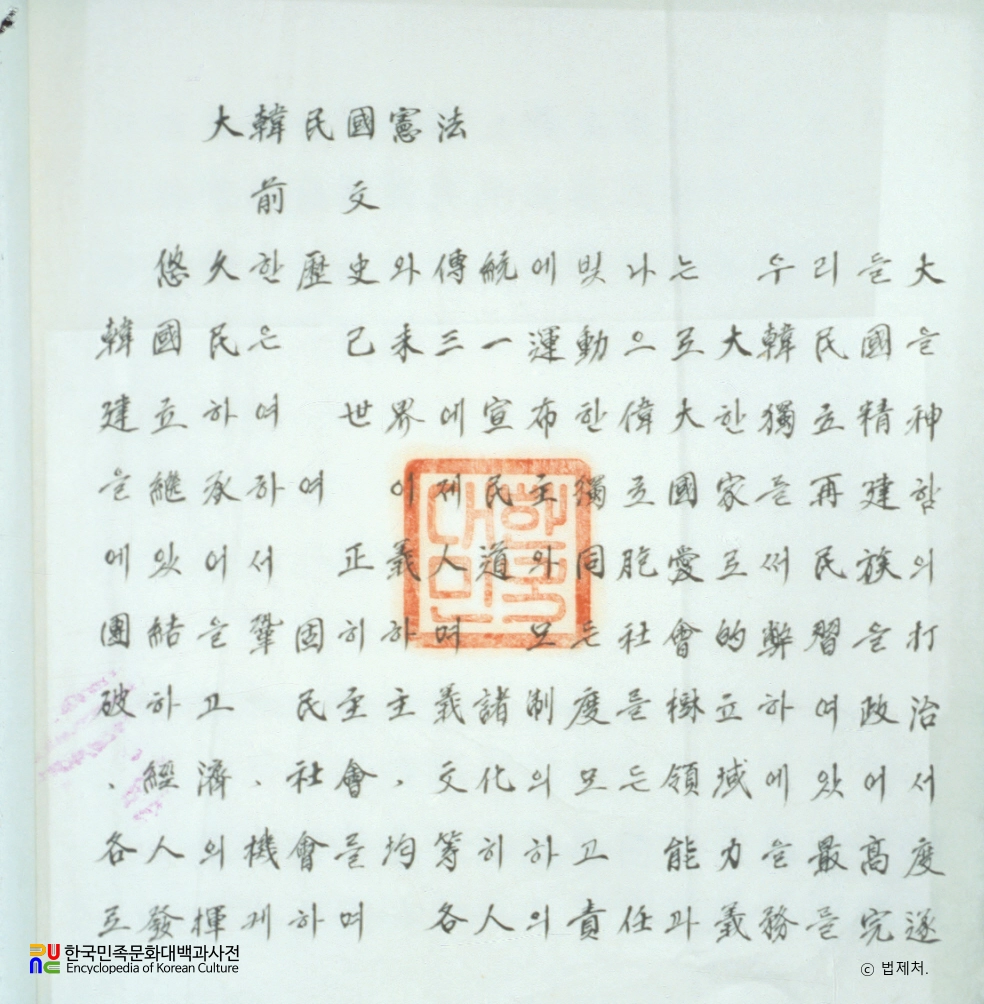 大韓民國憲法
前 文
悠久한歷史와傳統에빛나는 우리들大
韓國民은 己未三一運動으로大韓民國을
建立하여 世界에宣布한偉大한獨立精神
을繼承하여 이제民主獨立國家를再建함
에있어서 正義人道와同胞愛로써民族의
團結을鞏固히하며 모든社會的弊習을打
破하고 民主主義諸制度를樹立하여政治
、經濟、社會、文化의모든領域에있어서
各人의機會를均等히하고 能力을最高度
로發揮케하며 各人의責任과義務를完遂
대한민국
한국민족문화대백과사전
Encyclopedia of Korean Culture
ⓒ 법제처.